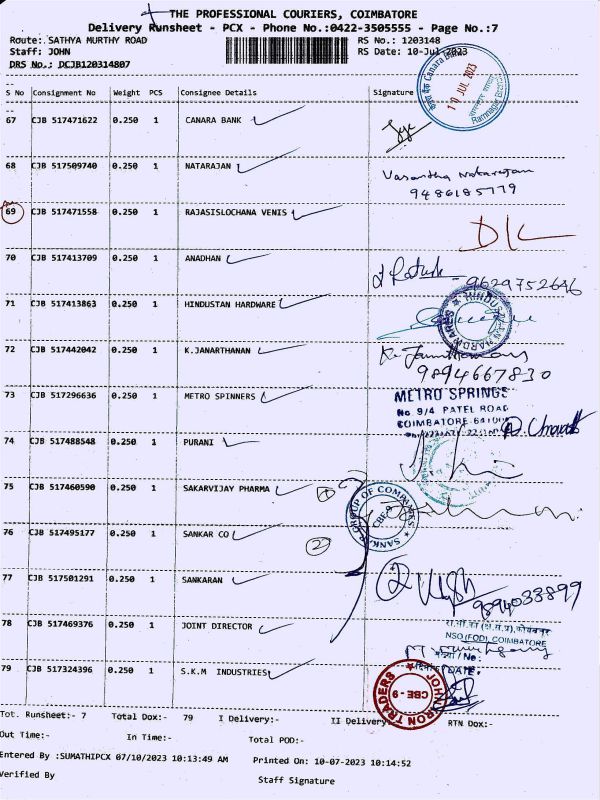 THE PROFESSIONAL COURIERS, COIMBATORE
Delivery Runsheet - PCX - Phone No.:0422-3505555 - Page No.:7
Route: SATHYA MURTHY ROAD RS No.: 1203148
Staff: JOHN RS Date: 10-Jul-2023
DRS No.: DCJB120314807
S No Consignment No Weight PCS Consignee Details Signature
Canara Bank
10 JUL 2023
Ramnagar Branch
67 CJB 517471622 0.250 1 CANARA BANK
68 CJB 517509740 0.250 1 NATARAJAN Vasantha Natarajan
9486185779
69 CJB 517471558 0.250 1 RAJASISLOCHANA VENIS
70 CJB 517413709 0.250 1 ANADHAN 9629752646
71 CJB 517413863 0.250 1 HINDUSTAN HARDWARE HINDUSTAN HARDWARES
72 CJB 517442042 0.250 1 K.JANARTHANAN
9894667830
73 CJB 517296636 0.250 1 METRO SPINNERS METRO SPRINGS
No 9/4 PATEL ROAD
COIMBATORE
74 CJB 517488548 0.250 1 PURANI
75 CJB 517460590 0.250 1 SAKARVIJAY PHARMA 1
SANKAR GROUP OF COMPANIES
CBE-9
76 CJB 517495177 0.250 1 SANKAR CO 2
77 CJB 517501291 0.250 1 SANKARAN 9894033899
78 CJB 517469376 0.250 1 JOINT DIRECTOR
NSO (FOD), COIMBATORE
No:
DATE:
79 CJB 517324396 0.250 1 S.K.M INDUSTRIES
IRON TRADERS
CBE - 9
Tot. Runsheet:- 7 Total Dox:- 79 I Delivery:- II Delivery:- RTN Dox:-
Out Time:- In Time:- Total POD:-
Entered By :SUMATHIPCX 07/10/2023 10:13:49 AM Printed On: 10-07-2023 10:14:52
Verified By Staff Signature